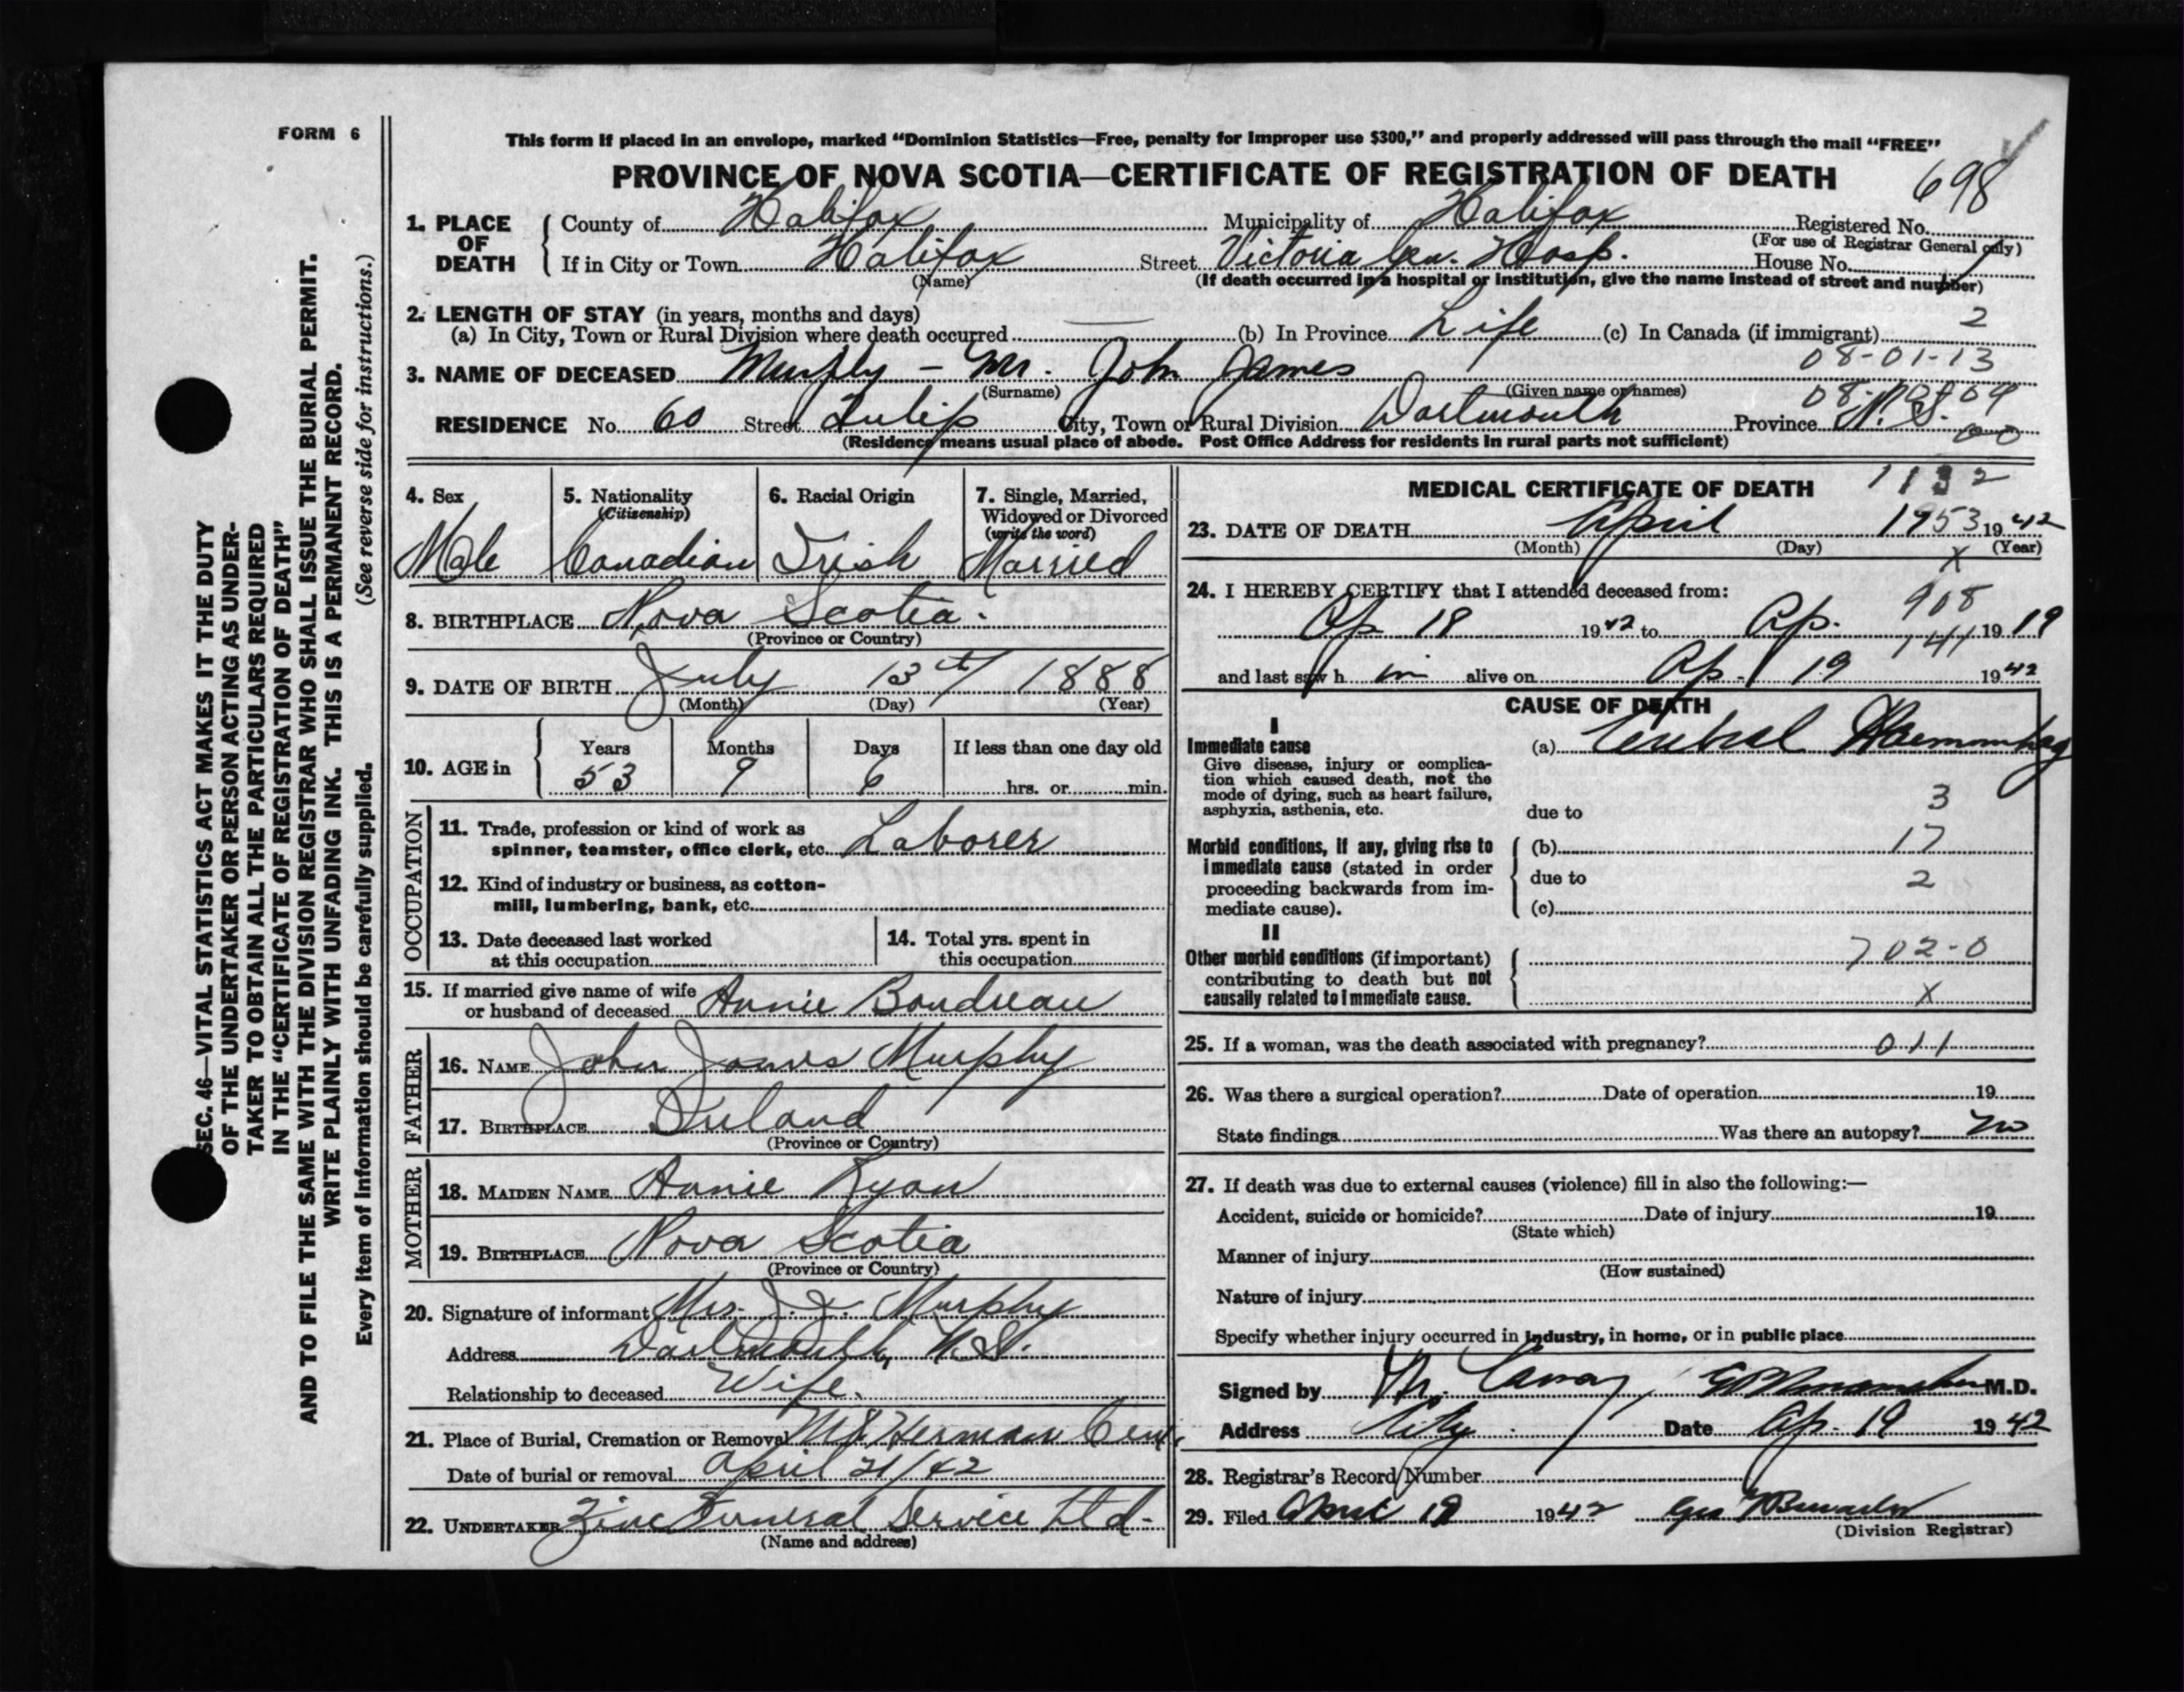 FORM 6
This form if placed in an envelope, marked “Dominion Statistics—Free, penalty for improper use $300,” and properly addressed will pass through the mail “FREE”
PROVINCE OF NOVA SCOTIA—CERTIFICATE OF REGISTRATION OF DEATH
698
1. PLACE OF DEATH
County of Halifax Municipality of Halifax Registered No.
(For use of Registrar General only)
If in City or Town Halifax Street Victoria Gen. Hosp. House No.
(Name) (If death occurred in a hospital or institution, give the name instead of street and number)
2. LENGTH OF STAY (in years, months and days)
(a) In City, Town or Rural Division where death occurred — (b) In Province Life (c) In Canada (if immigrant) 2
08-01-13
3. NAME OF DECEASED Murphy - Mr. John James
(Surname) (Given name or names)
RESIDENCE No. 60 Street Tulip City, Town or Rural Division Dartmouth Province N.S.
(Residence means usual place of abode. Post Office Address for residents in rural parts not sufficient)
4. Sex Male
5. Nationality (Citizenship) Canadian
6. Racial Origin Irish
7. Single, Married, Widowed or Divorced (write the word) Married
8. BIRTHPLACE Nova Scotia.
(Province or Country)
9. DATE OF BIRTH July 13th 1888
(Month) (Day) (Year)
10. AGE in Years 53 Months 9 Days 6 If less than one day old
hrs. or min.
OCCUPATION
11. Trade, profession or kind of work as
spinner, teamster, office clerk, etc. Laborer
12. Kind of industry or business, as cotton-
mill, lumbering, bank, etc.
13. Date deceased last worked
at this occupation
14. Total yrs. spent in
this occupation
15. If married give name of wife
or husband of deceased Annie Boudreau
FATHER
16. NAME John James Murphy
17. BIRTHPLACE Ireland
(Province or Country)
MOTHER
18. MAIDEN NAME Annie Ryan
19. BIRTHPLACE Nova Scotia
(Province or Country)
20. Signature of informant Mrs. J. J. Murphy
Address Dartmouth, N.S.
Relationship to deceased Wife.
21. Place of Burial, Cremation or Removal Mt Herman Cem.
Date of burial or removal April 21/42
22. UNDERTAKER Zinc Funeral Service Ltd.
(Name and address)
MEDICAL CERTIFICATE OF DEATH 1132
23. DATE OF DEATH April 1953 1942
(Month) (Day) (Year)
x
24. I HEREBY CERTIFY that I attended deceased from:
908
Ap 18 1942 to Ap. 19 19
141
and last saw h im alive on Ap - 19 1942
CAUSE OF DEATH
I
Immediate cause
Give disease, injury or complica-
tion which caused death, not the
mode of dying, such as heart failure,
asphyxia, asthenia, etc.
(a) Cerebral Haemorrhag
3
due to
Morbid conditions, if any, giving rise to
immediate cause (stated in order
proceeding backwards from im-
mediate cause).
(b) 17
due to 2
(c)
II
Other morbid conditions (if important)
contributing to death but not
causally related to immediate cause.
702-0
x
25. If a woman, was the death associated with pregnancy? 011
26. Was there a surgical operation? Date of operation 19
State findings Was there an autopsy? No
27. If death was due to external causes (violence) fill in also the following:—
Accident, suicide or homicide? Date of injury 19
(State which)
Manner of injury
(How sustained)
Nature of injury
Specify whether injury occurred in industry, in home, or in public place
Signed by M.D.
Address City. Date Ap. 19 1942
28. Registrar's Record Number
29. Filed April 19 1942
(Division Registrar)
SEC. 46—VITAL STATISTICS ACT MAKES IT THE DUTY
OF THE UNDERTAKER OR PERSON ACTING AS UNDER-
TAKER TO OBTAIN ALL THE PARTICULARS REQUIRED
IN THE “CERTIFICATE OF REGISTRATION OF DEATH”
AND TO FILE THE SAME WITH THE DIVISION REGISTRAR WHO SHALL ISSUE THE BURIAL PERMIT.
WRITE PLAINLY WITH UNFADING INK. THIS IS A PERMANENT RECORD.
Every item of information should be carefully supplied. (See reverse side for instructions.)